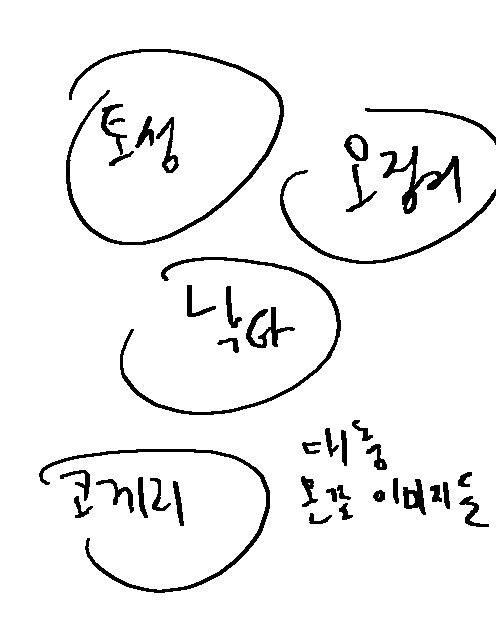 토성
오징어
낙타
코끼리
대충
온갖 이미지들